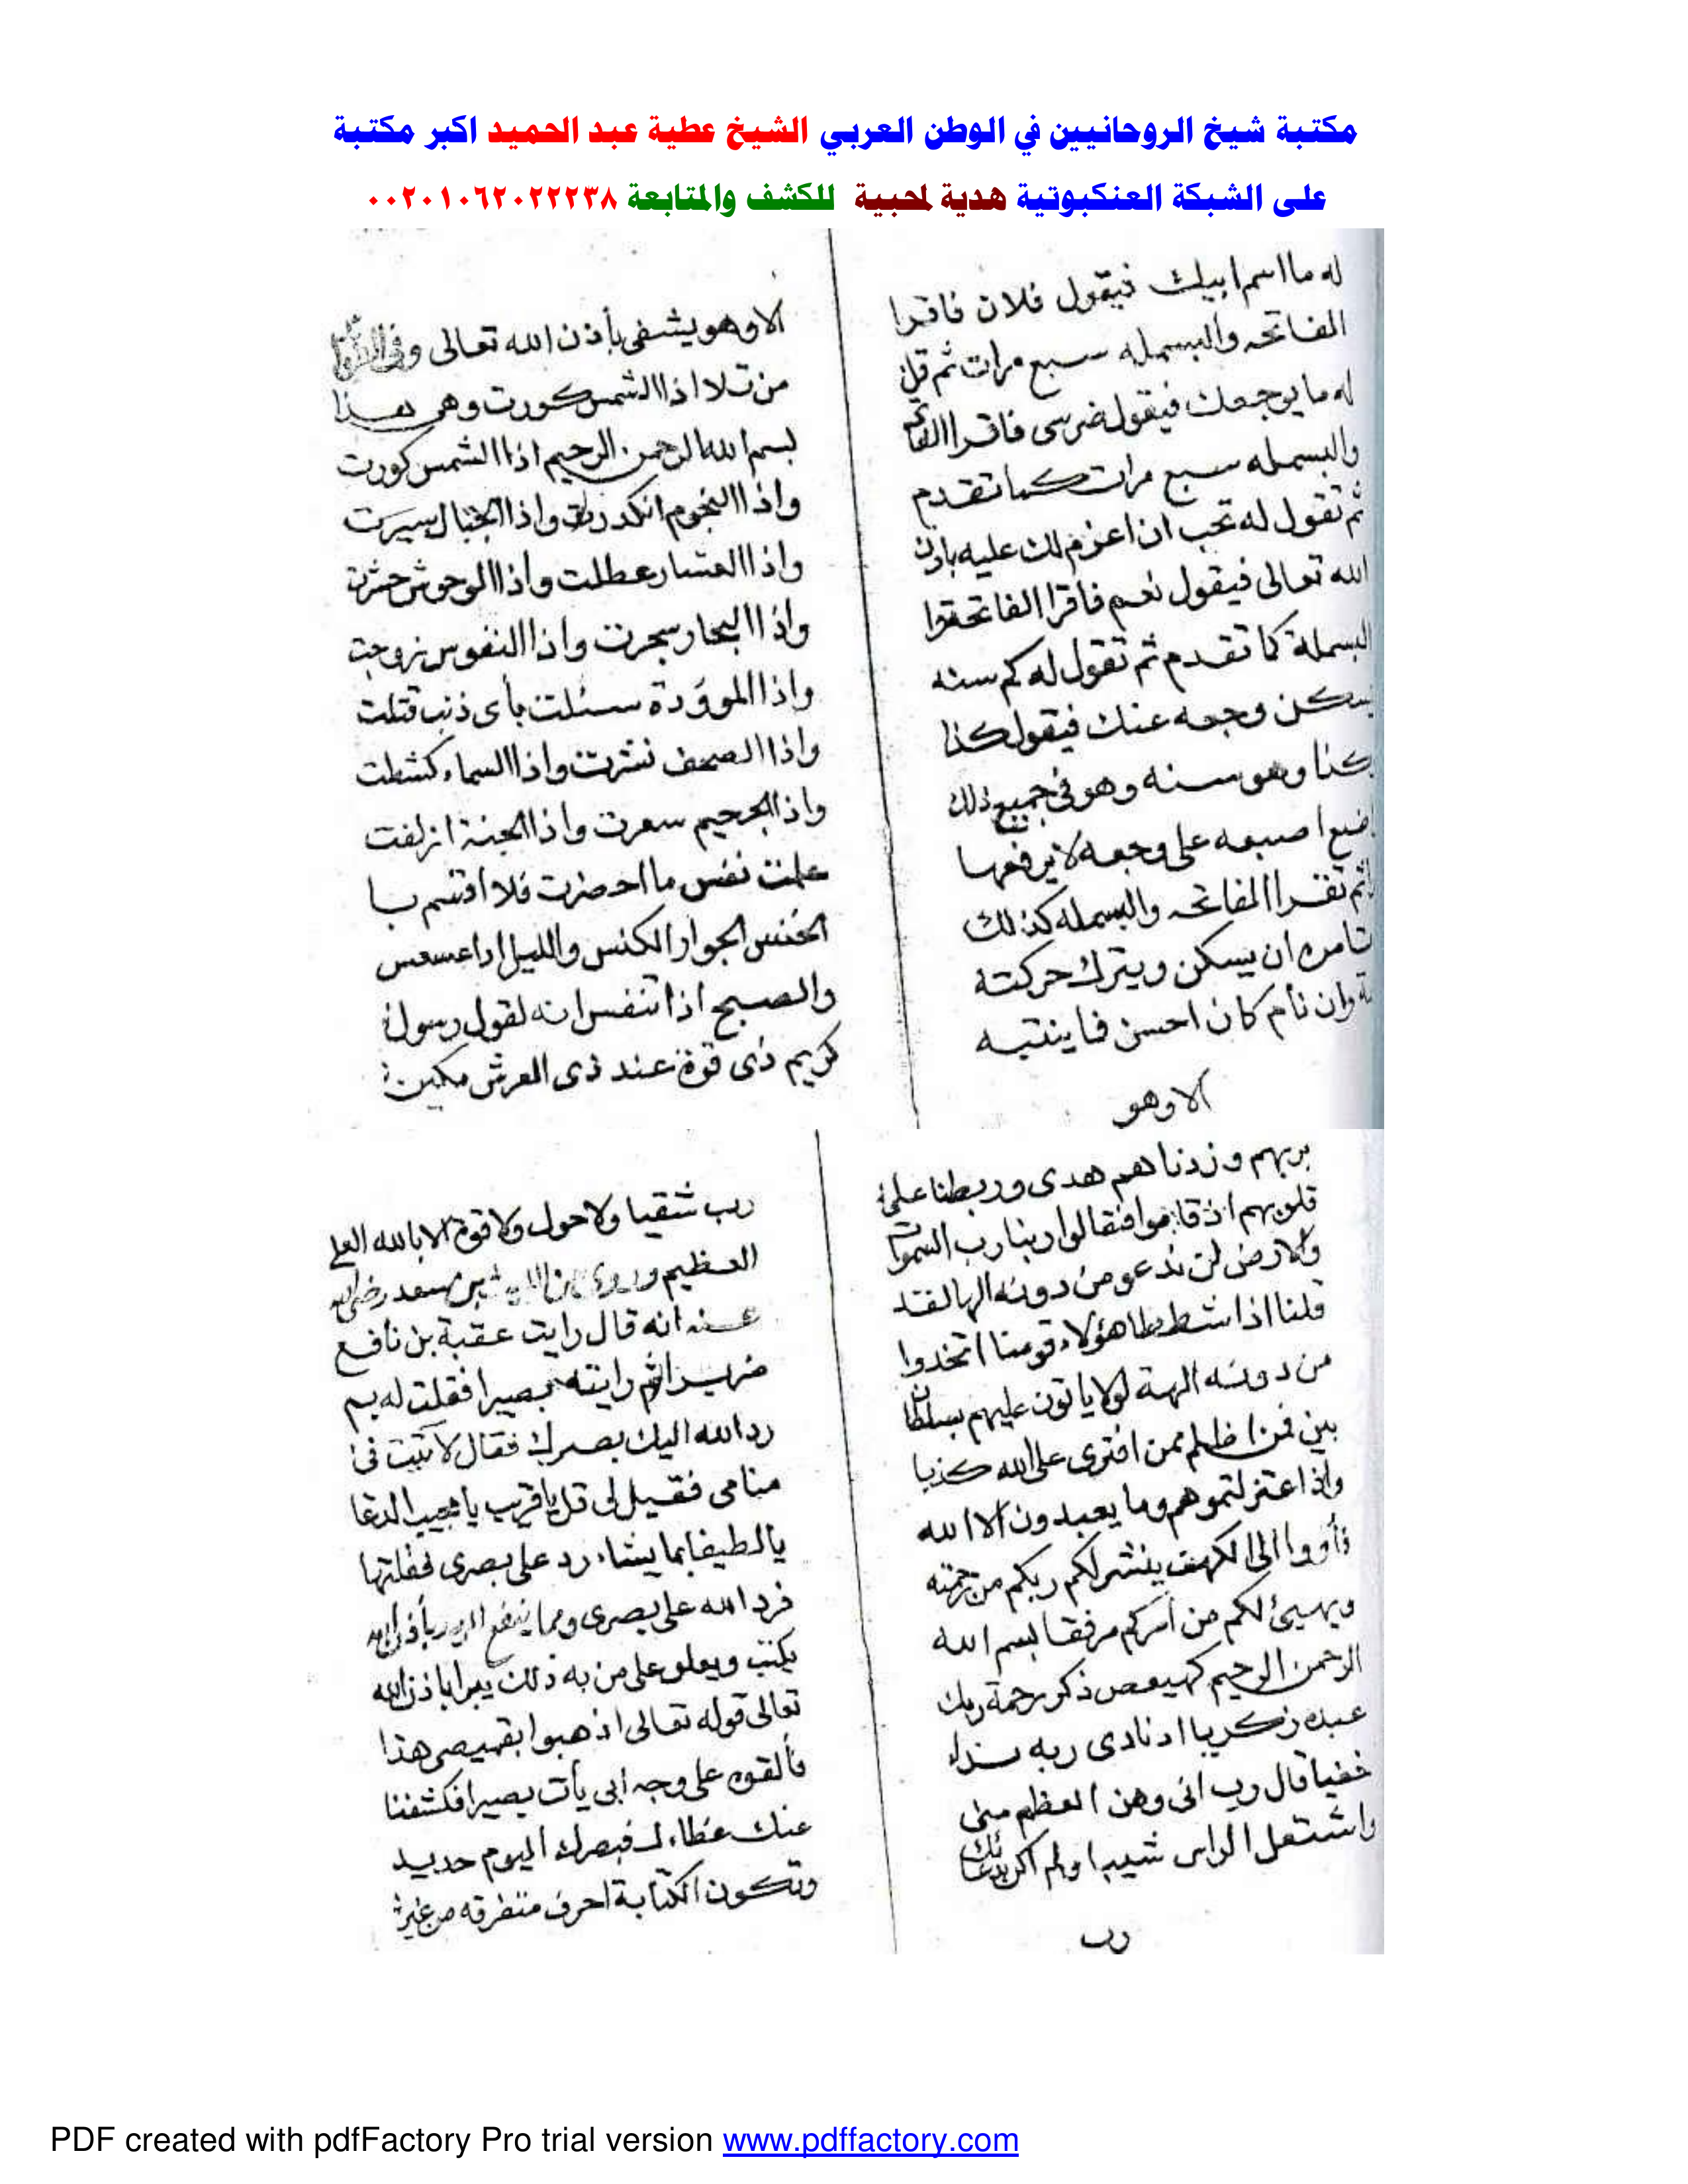 مكتبة شيخ الروحانيين في الوطن العربي الشيخ عطية عبد الحميد اكبر مكتبة
على الشبكة العنكبوتية هدية لمحبية للكشف والمتابعة ٠٠٢٠١٠٦٢٠٢٢٢٣٨
له ما اسم ابيك فيقول فلان فاقرا
الفاتحه والبسمله سبع مرات ثم قل
له ما يوجعك فيقول ضرسى فاقرا
والبسمله سبع مرات كما تقدم
ثم تقول له تحب ان اعزم لك عليه باذن
الله تعالى فيقول نعم فاقرا الفاتحة
البسملة كما تقدم ثم تقول له كم سنه
يسكن وجعه عنك فيقول كذا
كذا وهو سنه وهو فى جميع ذلك
اصبعه على وجعه لا يرفعها
ثم تقرا الفاتحه والبسمله كذلك
تامره ان يسكن ويترك حركته
وان نام كان احسن فما ينتبه
الا وهو
الا وهو يشفى بأذن الله تعالى
من تلا اذا الشمس كورت وهى هذا
بسم الله الرحمن الرحيم اذا الشمس كورت
واذا النجوم انكدرت واذا الجبال سيرت
واذا العشار عطلت واذا الوحوش حشرت
واذا البحار سجرت واذا النفوس زوجت
واذا الموؤدة سئلت بأى ذنب قتلت
واذا الصحف نشرت واذا السماء كشطت
واذا الجحيم سعرت واذا الجنة ازلفت
علمت نفس ما احضرت فلا اقسم با
الخنس الجوار الكنس والليل اذا عسعس
والصبح اذا تنفس انه لقول رسول
كريم ذى قوة عند ذى العرش مكين
بربهم وزدناهم هدى وربطنا على
قلوبهم اذ قاموا فقالوا ربنا رب السموات
والارض لن ندعو من دونه الها لقد
قلنا اذا شططا هؤلاء قومنا اتخذوا
من دونه الهة لولا ياتون عليهم بسلطان
بين فمن اظلم ممن افترى على الله كذبا
واذ اعتزلتموهم وما يعبدون الا الله
فأووا الى الكهف ينشر لكم ربكم من رحمته
ويهيئ لكم من أمركم مرفقا بسم الله
الرحمن الرحيم كهيعص ذكر رحمة ربك
عبده زكريا اذ نادى ربه نداء
خفيا قال رب انى وهن العظم منى
واشتعل الراس شيبا ولم اكن بدعائك
رب
رب شقيا ولا حول ولا قوة الا بالله العلى
العظيم وروى بن سعد رضى الله
عنه انه قال رايت عقبة بن نافع
ضريرا ثم رايته بصيرا فقلت له بم
رد الله اليك بصرك فقال لا تيت فى
منامى فقيل لى قل يا قريب يا مجيب الدعا
يا لطيفا بما يشاء رد على بصرى فقلتها
فرد الله على بصرى ومما ينفع بأذن الله
يكتب ويعلق على من به ذلك يبرا باذن الله
تعالى قوله تعالى اذهبوا بقميصى هذا
فألقوه على وجه ابى يأت بصيرا فكشفنا
عنك غطاءك فبصرك اليوم حديد
وتكون الكتابة احرف متفرقه من غير
PDF created with pdfFactory Pro trial version www.pdffactory.com